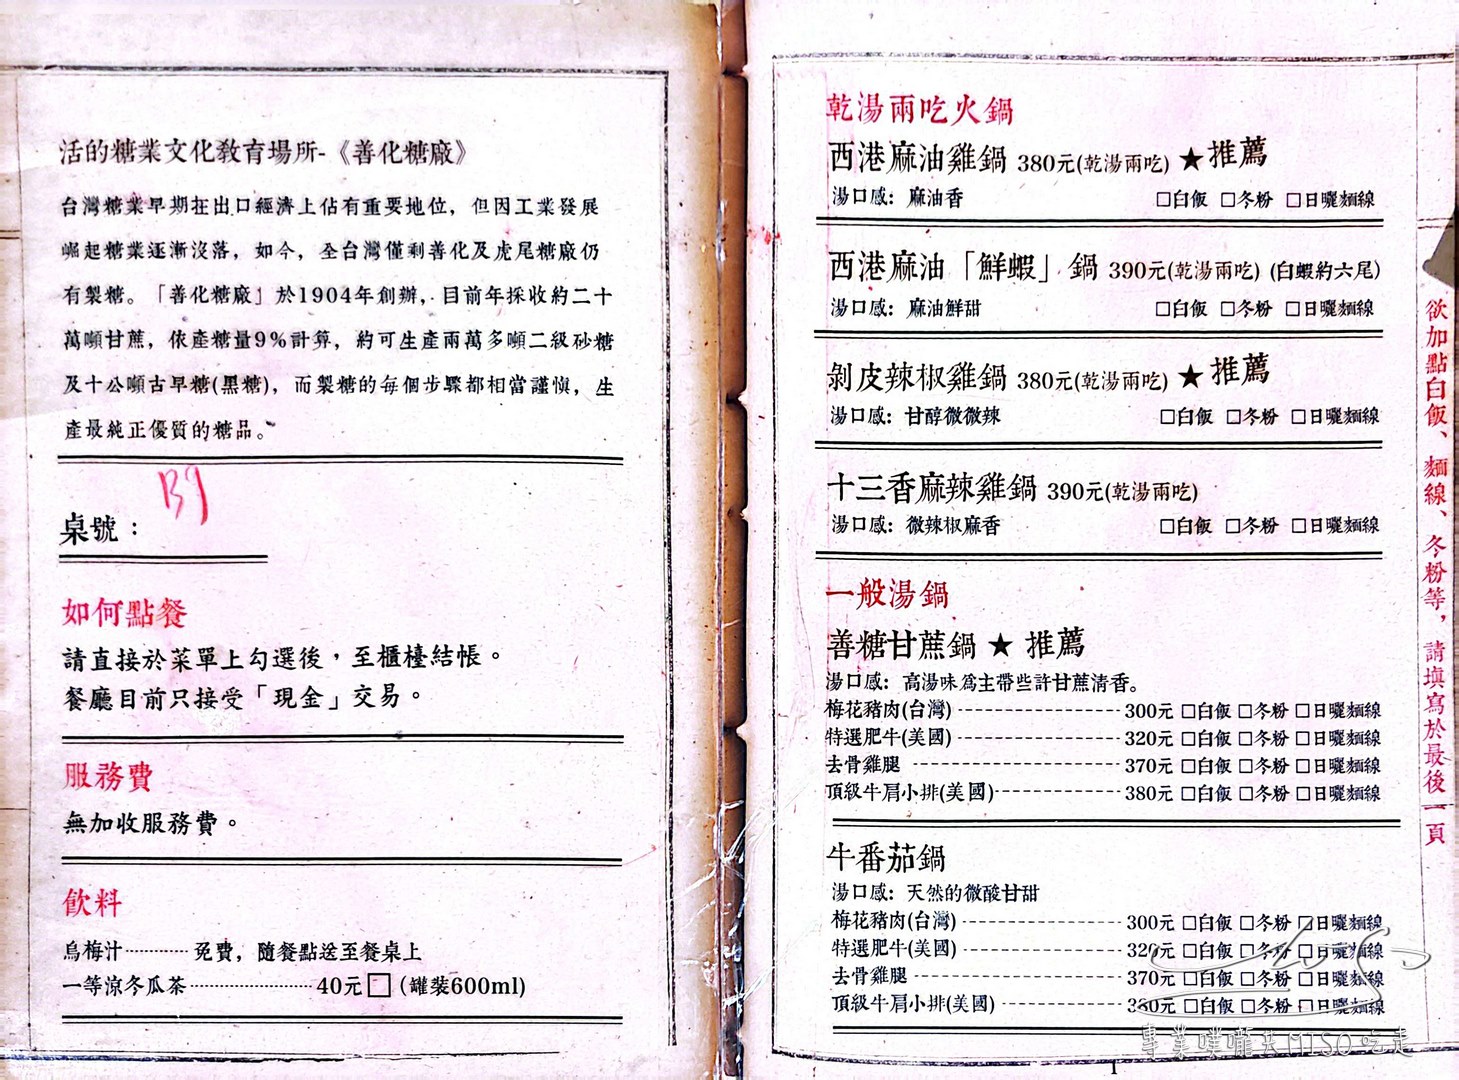 活的糖業文化教育場所-《善化糖廠》
台灣糖業早期在出口經濟上佔有重要地位，但因工業發展
崛起糖業逐漸沒落，如今，全台灣僅剩善化及虎尾糖廠仍
有製糖。「善化糖廠」於1904年創辦，目前年採收約二十
萬噸甘蔗，依產糖量9%計算，約可生產兩萬多噸二級砂糖
及十公噸古早糖(黑糖)，而製糖的每個步驟都相當謹慎，生
產最純正優質的糖品。
桌號： B9
如何點餐
請直接於菜單上勾選後，至櫃檯結帳。
餐廳目前只接受「現金」交易。
服務費
無加收服務費。
飲料
烏梅汁----------- 免費，隨餐點送至餐桌上
一等涼冬瓜茶----------------------40元□(罐裝600ml)
乾湯兩吃火鍋
西港麻油雞鍋 380元(乾湯兩吃) ★推薦
湯口感：麻油香 □白飯 □冬粉 □日曬麵線
西港麻油「鮮蝦」鍋 390元(乾湯兩吃) (白蝦約六尾)
湯口感：麻油鮮甜 □白飯 □冬粉 □日曬麵線
剝皮辣椒雞鍋 380元(乾湯兩吃) ★推薦
湯口感：甘醇微微辣 □白飯 □冬粉 □日曬麵線
十三香麻辣雞鍋 390元(乾湯兩吃)
湯口感：微辣椒麻香 □白飯 □冬粉 □日曬麵線
一般湯鍋
善糖甘蔗鍋 ★ 推薦
湯口感：高湯味為主帶些許甘蔗清香。
梅花豬肉(台灣)--------------------300元 □白飯 □冬粉 □日曬麵線
特選肥牛(美國)--------------------320元 □白飯 □冬粉 □日曬麵線
去骨雞腿 -------------------------370元 □白飯 □冬粉 □日曬麵線
頂級牛肩小排(美國)---------------380元 □白飯 □冬粉 □日曬麵線
牛番茄鍋
湯口感：天然的微酸甘甜
梅花豬肉(台灣)--------------------300元 □白飯 □冬粉 □日曬麵線
特選肥牛(美國)--------------------320元 □白飯 □冬粉 □日曬麵線
去骨雞腿 -------------------------370元 □白飯 □冬粉 □日曬麵線
頂級牛肩小排(美國) ---------------380元 □白飯 □冬粉 □日曬麵線
欲加點白飯、麵線、冬粉等，請填寫於最後一頁
1